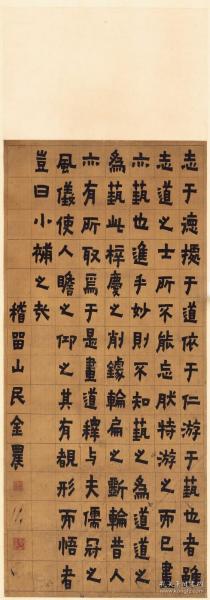 志于德據于道依于仁游于藝也者雖
志道之士所不能忘然特游之而已畫
亦藝也進乎妙則不知藝之為道道之
為藝此梓慶之削鐻輪扁之斲輪昔人
亦有所取焉于是畫道釋與夫儒冠之
風儀使人瞻之仰之其有覩形而悟者
豈曰小補之哉
稽留山民金農